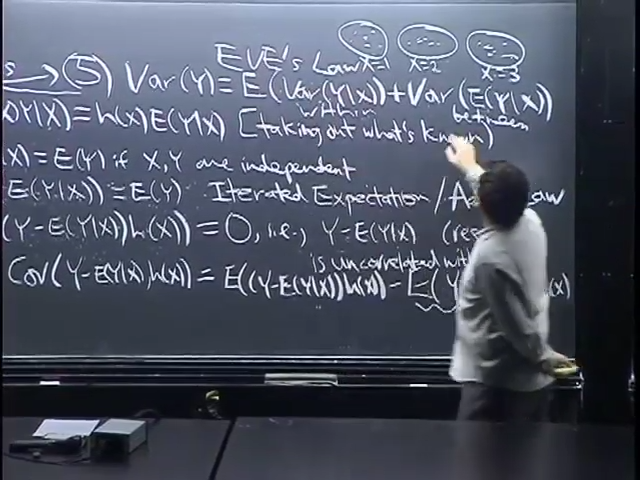 EVE's Law X=1 X=2 X=3
s → (5) Var(Y)= E(Var(Y|X))+Var(E(Y|X))
within between
Y|X)=h(X)E(Y|X) (taking out what's known)
X)=E(Y) if X,Y are independent
E(Y|X))=E(Y) Iterated Expectation/A
(Y-E(Y|X))h(X))=0, i.e., Y-E(Y|X)
is uncorrelated with
Cov(Y-E(Y|X),h(X))=E((Y-E(Y|X))h(X))-E(Y